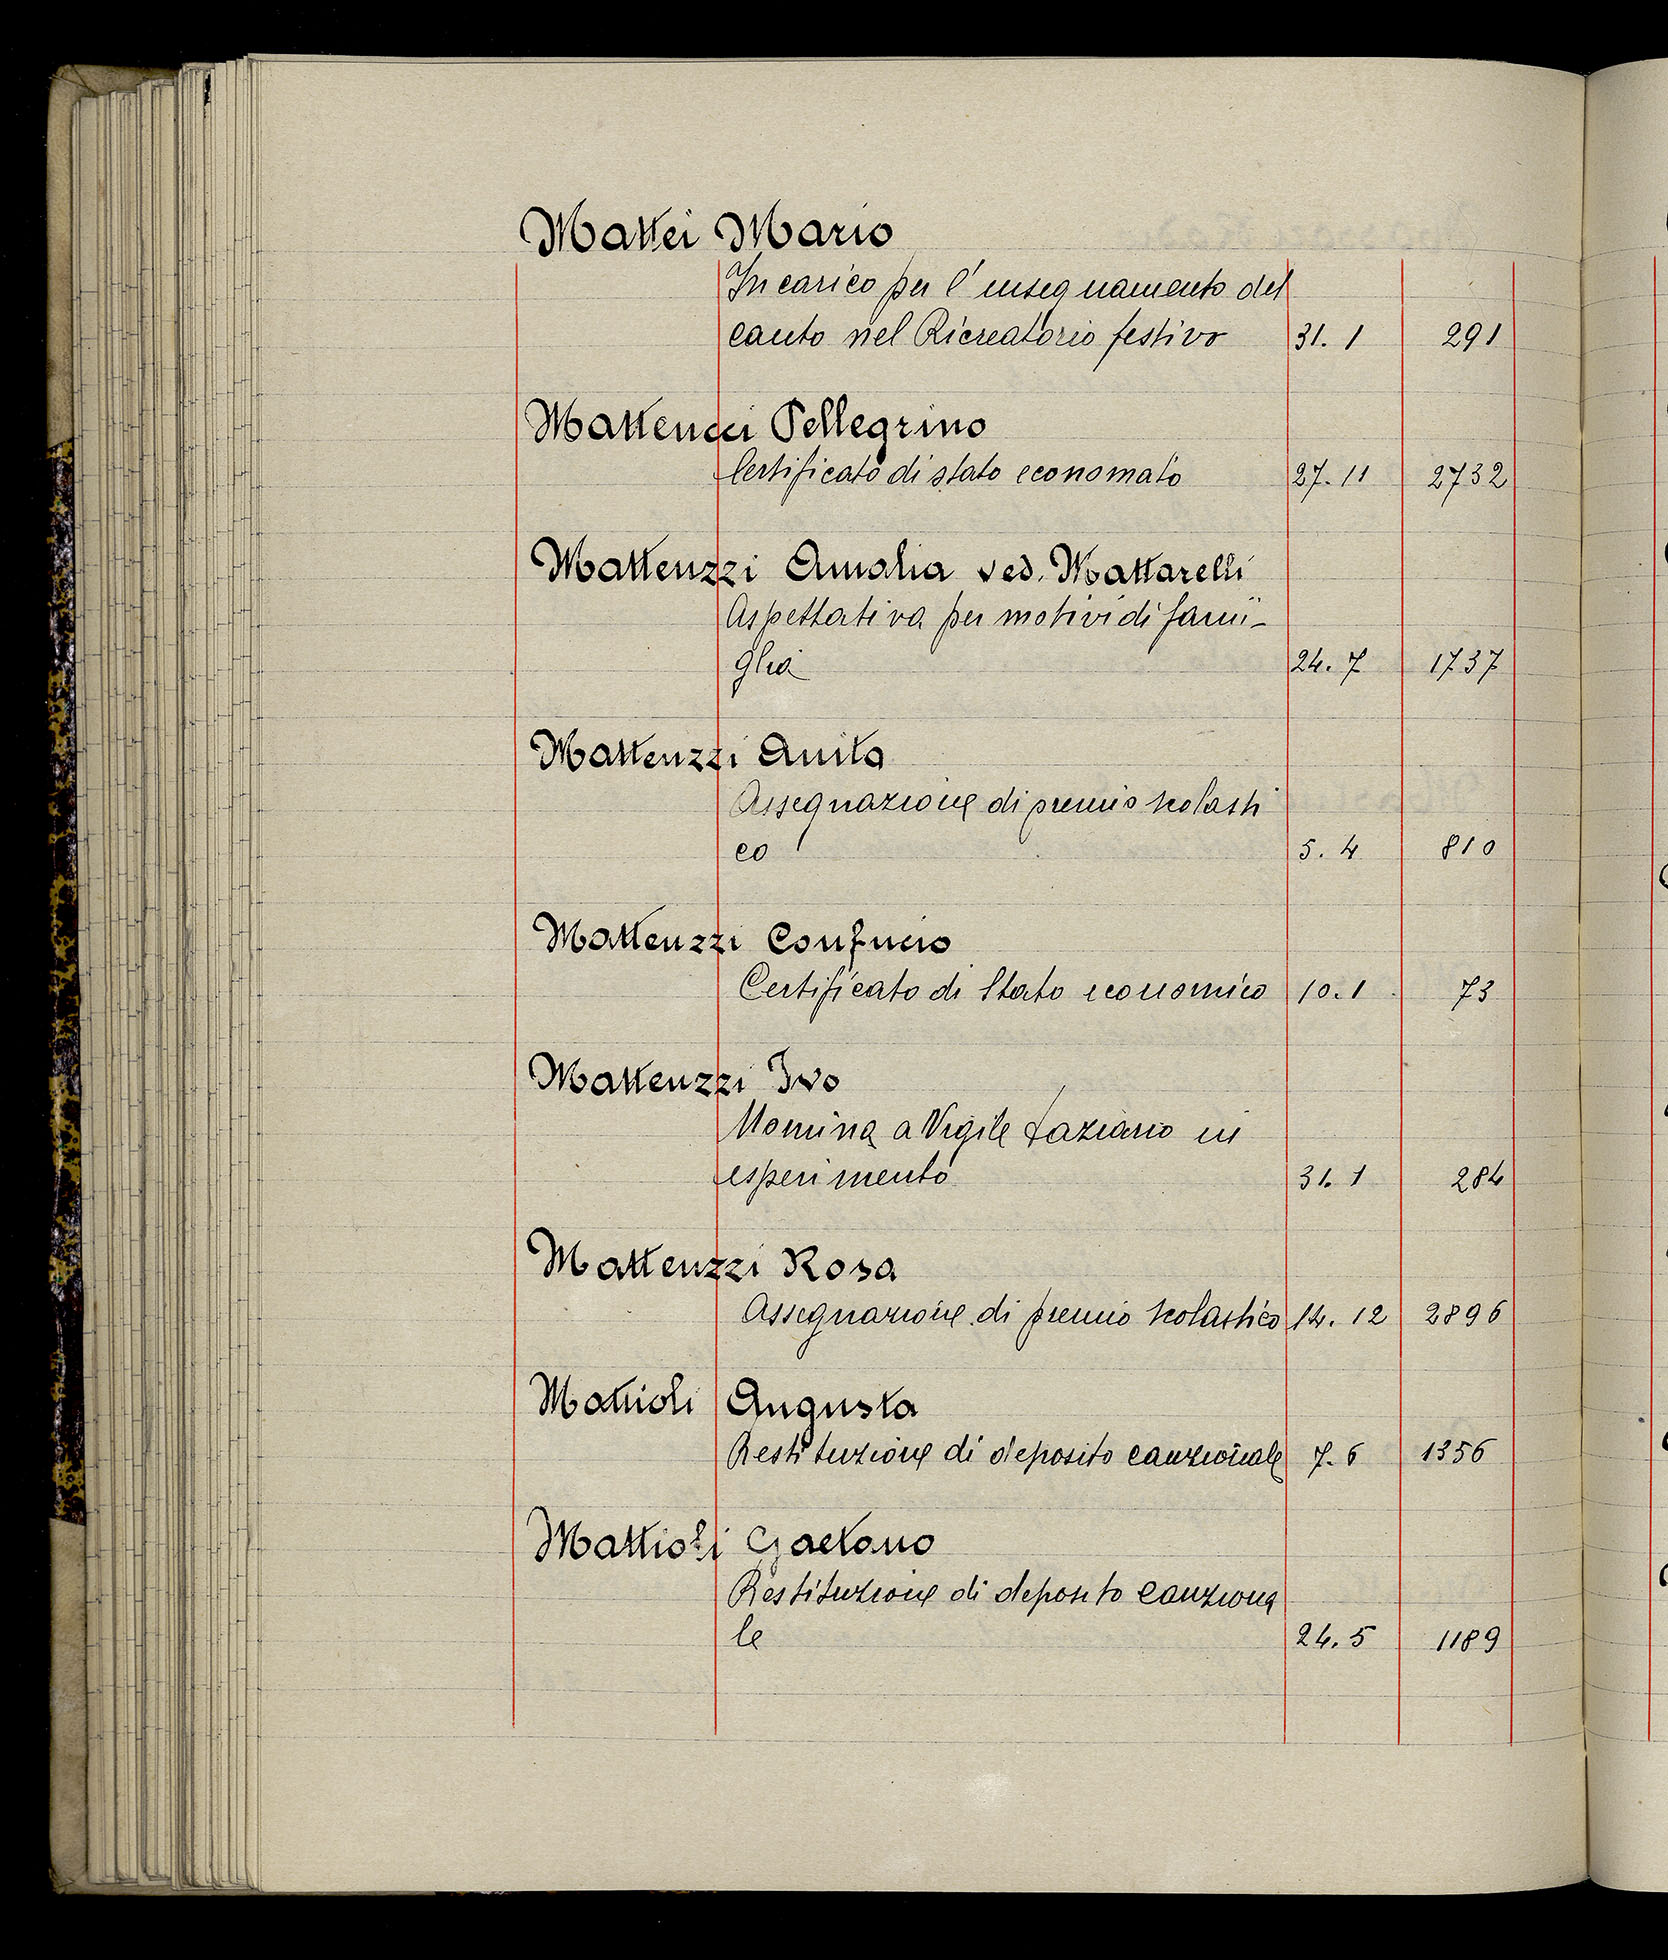 Mattei Mario
Incarico per l'insegnamento del
canto nel Ricreatorio festivo 31. 1 291
Matteucci Pellegrino
Certificato di stato economato 27. 11 2732
Matteuzzi Amalia ved. Mattarelli
Aspettativa per motivi di fami-
glia 24. 7 1737
Matteuzzi Anita
Assegnazione di premio scolasti
co 5. 4 810
Matteuzzi Confucio
Certificato di Stato economico 10. 1 73
Matteuzzi Ivo
Nomina a Vigile daziario in
esperimento 31. 1 284
Matteuzzi Rosa
Assegnazione di premio scolastico 14. 12 2896
Mattioli Augusta
Restituzione di deposito cauzionale 7. 6 1356
Mattioli Gaetano
Restituzione di deposito cauziona
le 24. 5 1189